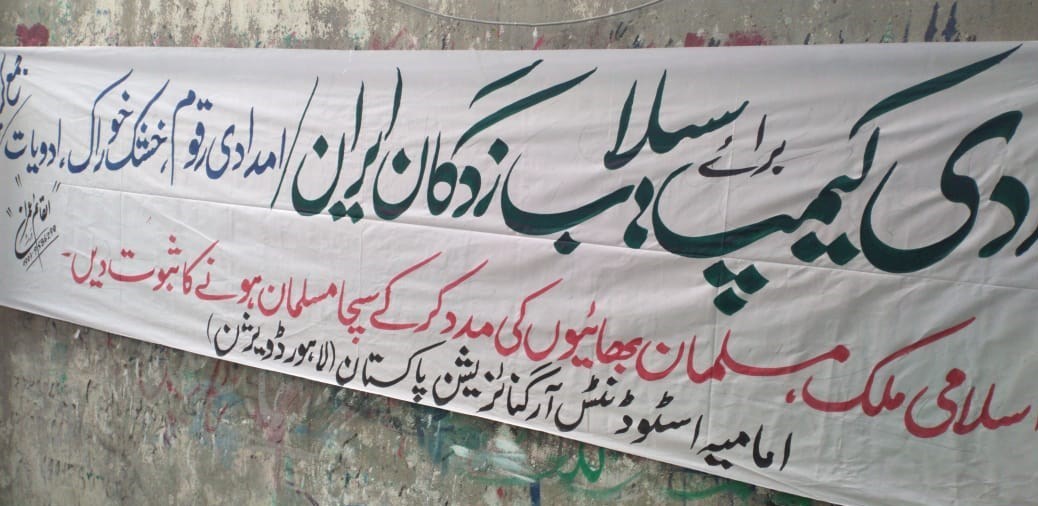 دی کیمپ برائے سیلاب زدگان ایران / امدادی رقوم، خشک خوراک، ادویات
اسلامی ملک، مسلمان بھائیوں کی مدد کرکے سچا مسلمان ہونے کا ثبوت دیں۔
امامیہ اسٹوڈنٹس آرگنائزیشن پاکستان (لاہور ڈویژن)